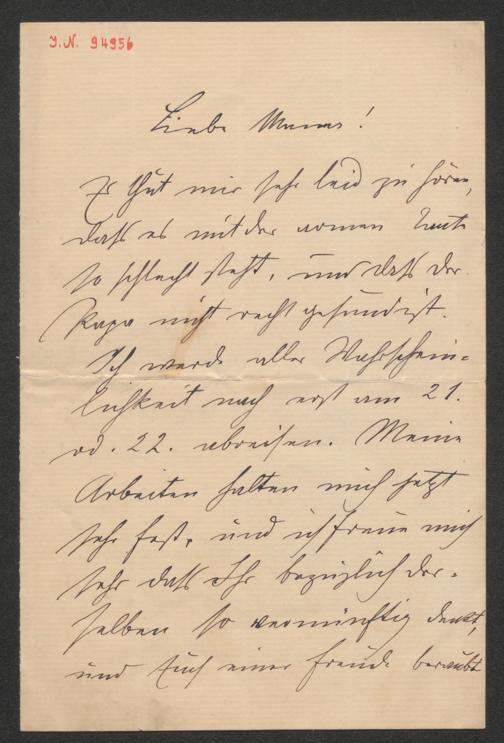 J.N. 94956
Liebe Mama!
Es thut mir sehr leid zu hören,
dass es mit der armen Tante
so schlecht steht, und dass der
Papa nicht recht gesund ist.
Ich werde aller Wahrschein-
lichkeit nach erst am 21.
od. 22. abreisen. Meine
Arbeiten halten mich jetzt
sehr fest, und ich freue mich
sehr dass Ihr bezüglich der-
selben so vernünftig denkt,
und Euch einer Freude beraubt